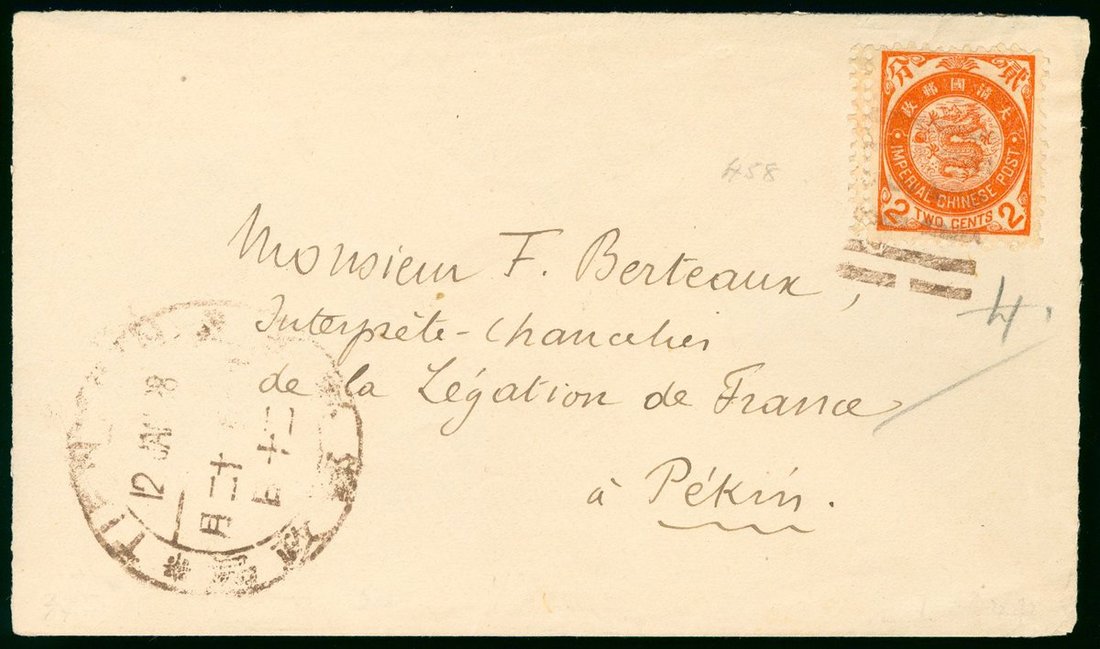 分 貳
大清國郵政
IMPERIAL CHINESE POST
2 TWO CENTS 2
458
Monsieur F. Berteaux,
Interprète-Chancelier
de la Légation de France
à Pékin.
4.
12 JAN 98
十二月
二十